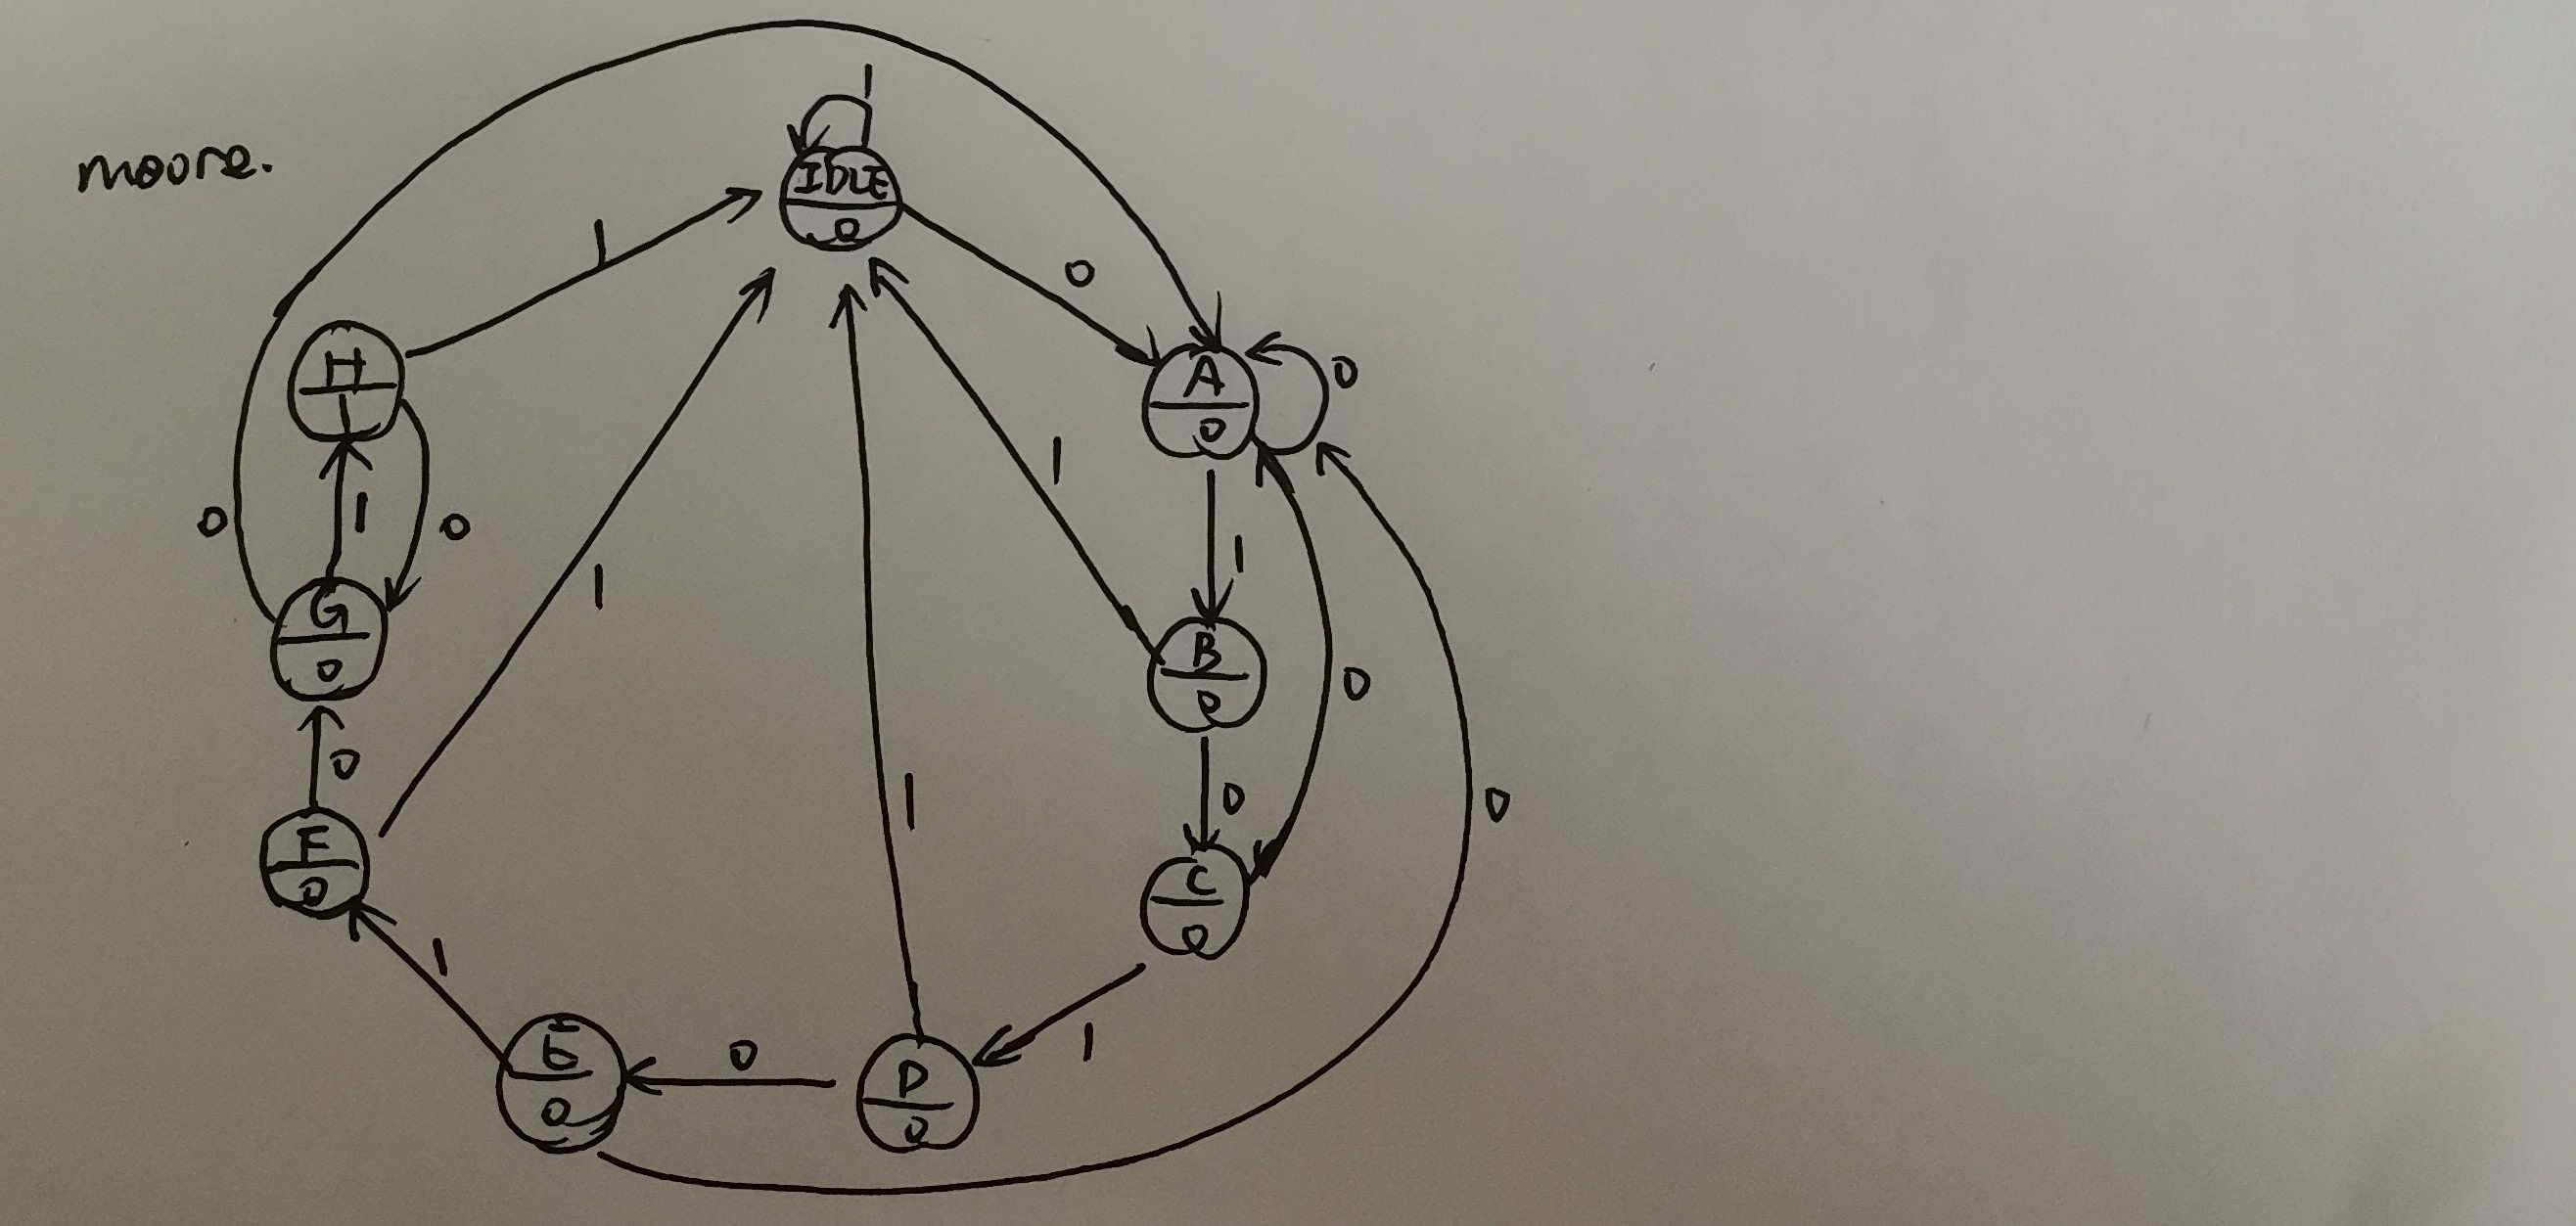 moore.
1
IDLE
0
0
1
H
1
A
0
0
0
1
0
1
1
1
G
0
B
0
0
0
0
1
0
F
0
C
0
1
0
1
E
0
D
0